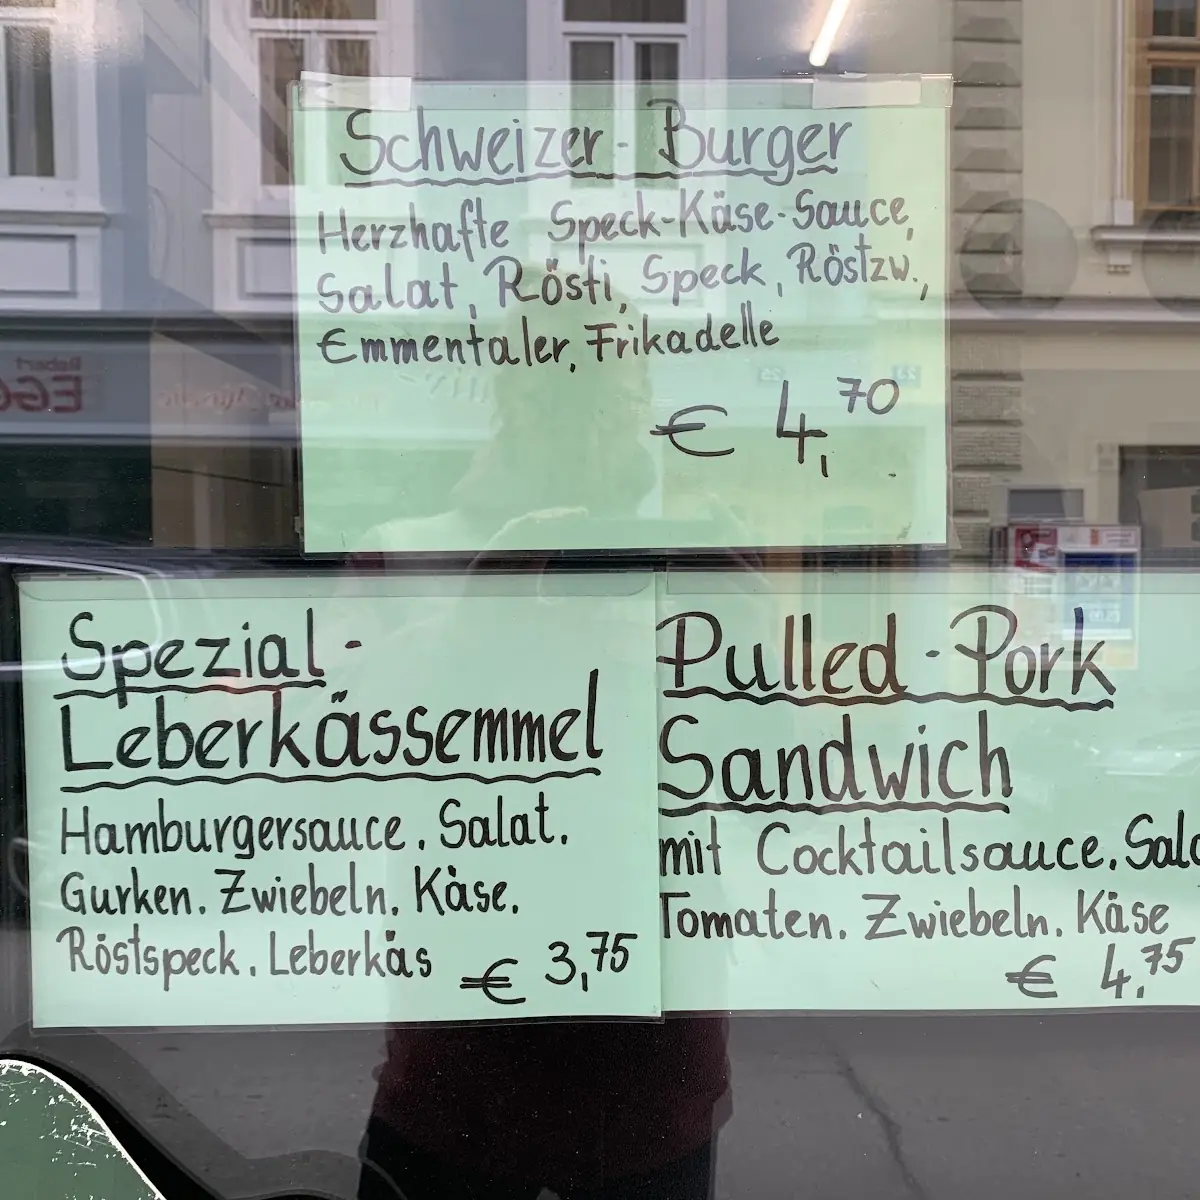 Schweizer-Burger
Herzhafte Speck-Käse-Sauce,
Salat, Rösti, Speck, Röstzw.,
Emmentaler, Frikadelle
€ 4,70
Spezial-
Leberkässemmel
Hamburgersauce. Salat.
Gurken. Zwiebeln. Käse.
Röstspeck. Leberkäs
€ 3,75
Pulled-Pork
Sandwich
mit Cocktailsauce. Sala
Tomaten. Zwiebeln. Käse
€ 4,75
Robert
EGG